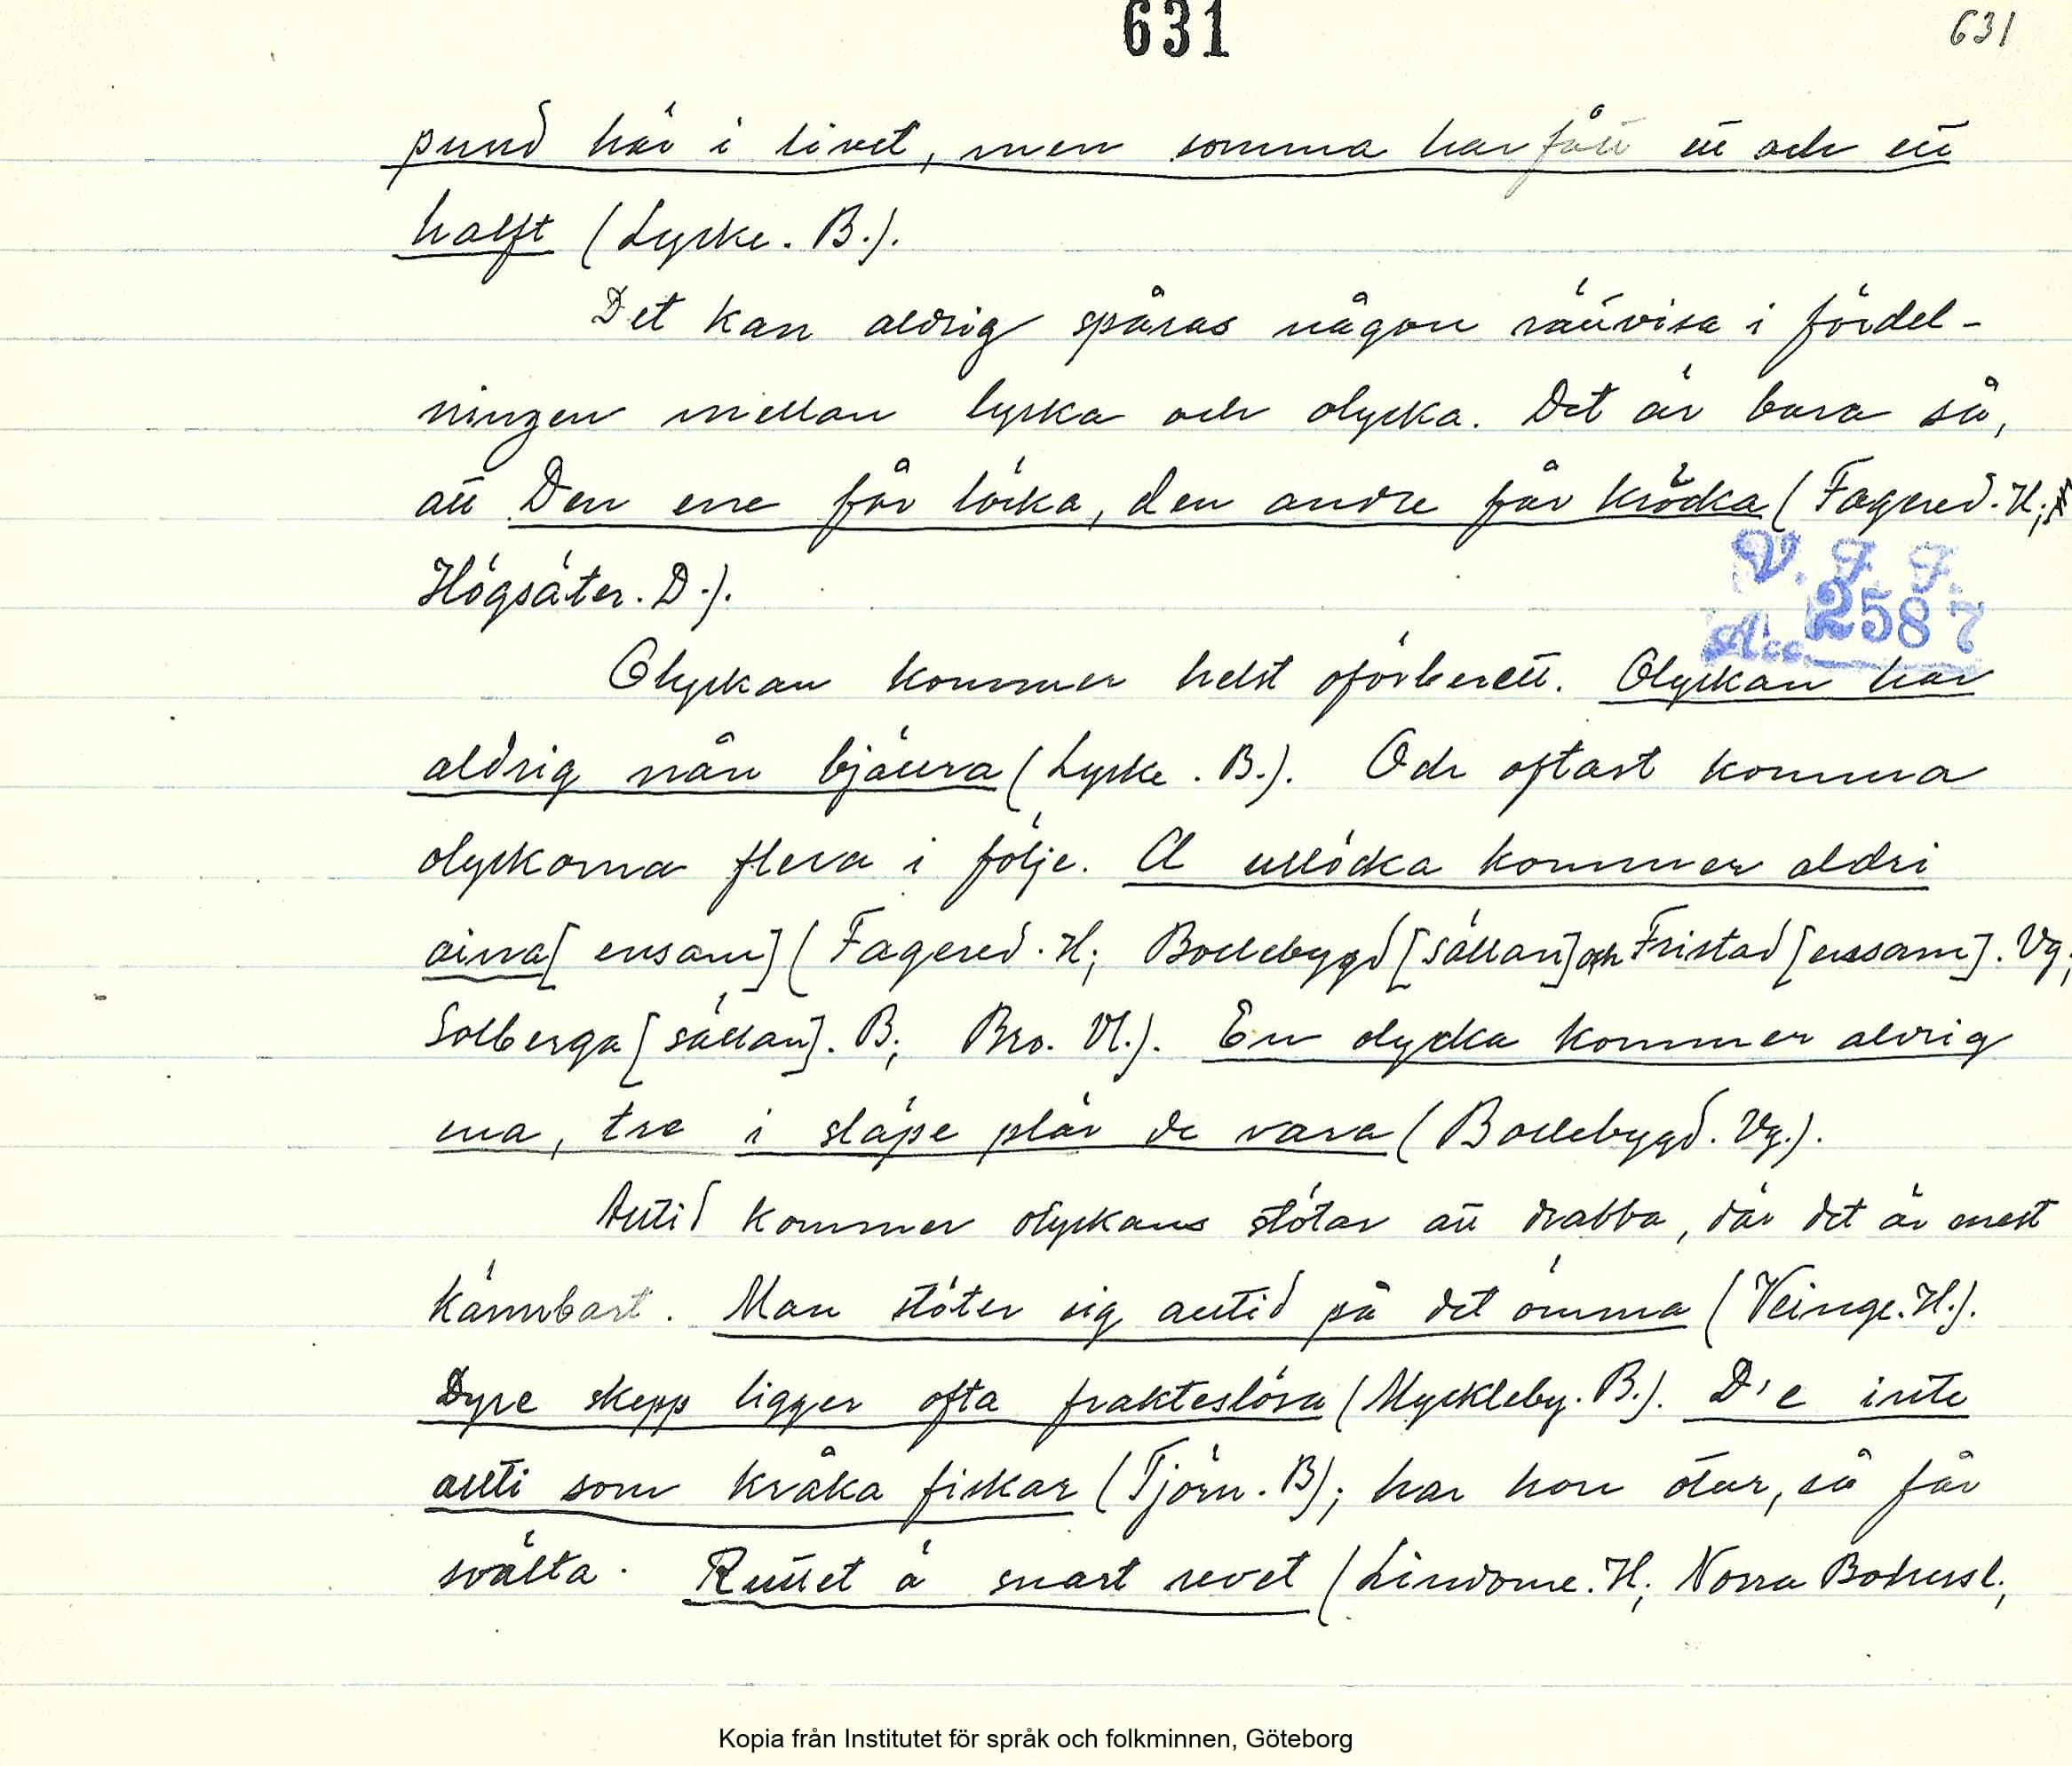 631
631
pund här i livet, men somma har fått ett och ett
halft (Lyrke. B.).
Det kan aldrig spåras någon rättvisa i fördel-
ningen mellan lycka och olycka. Det är bara så,
att Den ene får löcka, den andre får kröcka (Fagered. H;
Högsäter. D.).
V. F. F.
Acc. 2587
Olyckan kommer helst oförberett. Olyckan har
aldrig nån bjällra (Lyrke. B.). Och oftast komma
olyckorna flera i följe. A ullöcka kommer aldri
aina [ensam] (Fagered. H; Bollebygd [sällan] och Fristad [ensam]. Vg;
Solberga [sällan]. B; Bro. Vl.). En olycka kommer aldrig
ena, tre i släpe plär de vara (Bollebygd. Vg.).
Alltid kommer olyckans stötar att drabba, där det är mest
kännbart. Man stöter sig alltid på det ömma (Veinge. H.).
Dyre skepp ligger ofta frakteslösa (Myckleby. B.). D'e inte
allti som kråka fiskar (Tjörn. B); har hon otur, så får
svälta. Ruttet ä snart revet (Lindome. H; Norra Bohusl;
Kopia från Institutet för språk och folkminnen, Göteborg